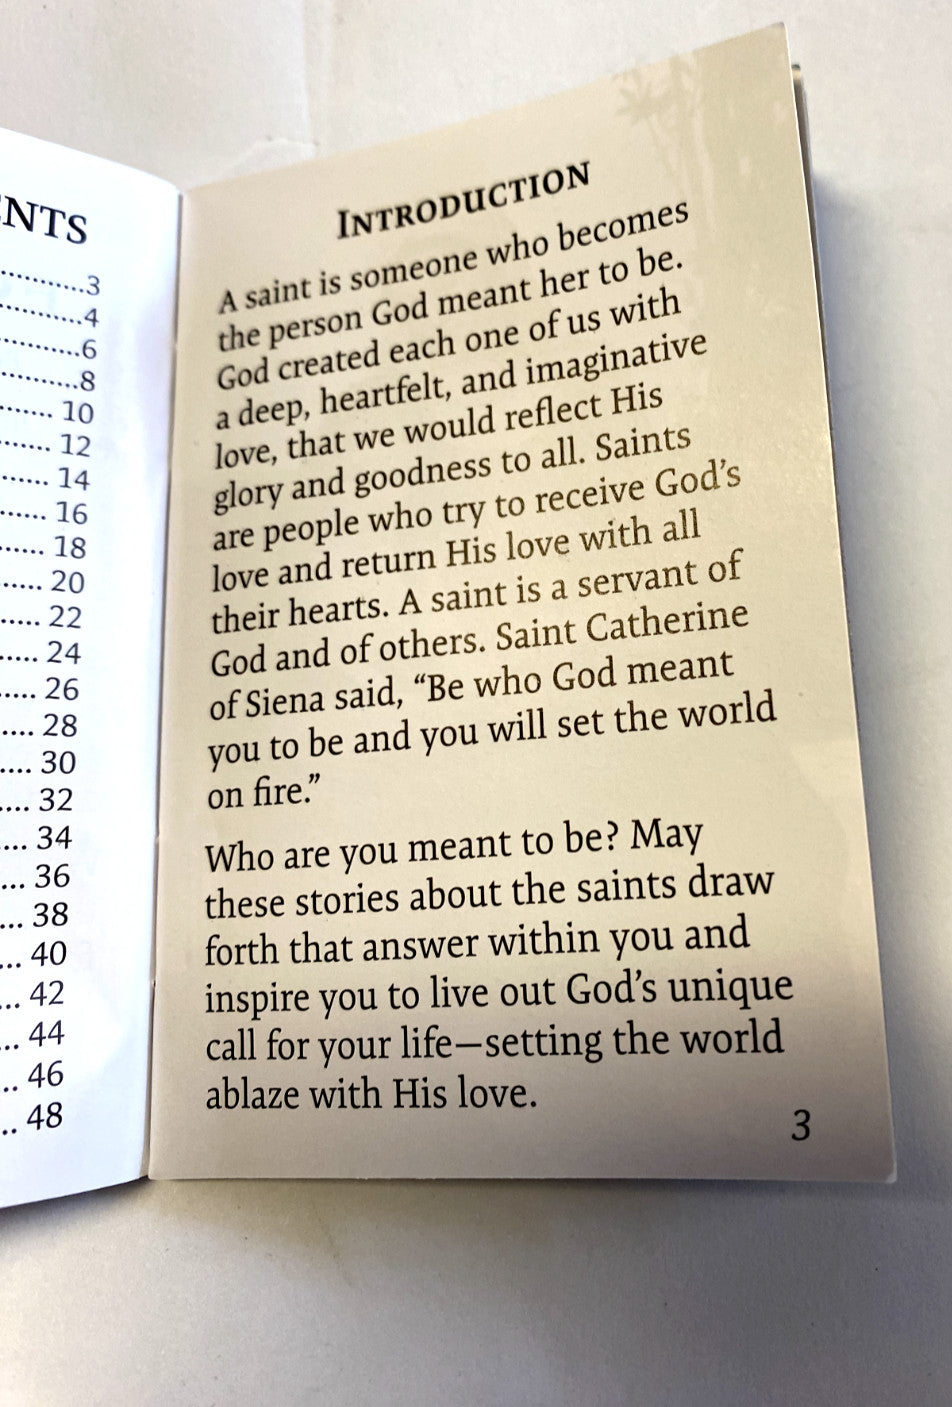 ENTS
..........3
..........4
..........6
..........8
....... 10
....... 12
....... 14
...... 16
...... 18
..... 20
..... 22
..... 24
..... 26
.... 28
.... 30
.... 32
... 34
... 36
... 38
... 40
... 42
.. 44
.. 46
.. 48
INTRODUCTION
A saint is someone who becomes
the person God meant her to be.
God created each one of us with
a deep, heartfelt, and imaginative
love, that we would reflect His
glory and goodness to all. Saints
are people who try to receive God’s
love and return His love with all
their hearts. A saint is a servant of
God and of others. Saint Catherine
of Siena said, “Be who God meant
you to be and you will set the world
on fire.”
Who are you meant to be? May
these stories about the saints draw
forth that answer within you and
inspire you to live out God’s unique
call for your life—setting the world
ablaze with His love.
3